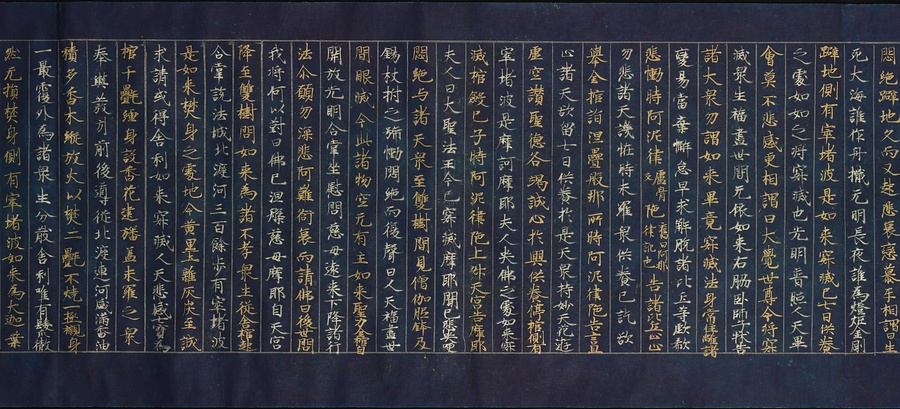 悶絶躃地久而又起悲哀戀慕手相謂曰生
死大海誰作舟檝无明長夜誰為燈炬金剛
躃地側有窣堵波是如来寂滅七日供養
之處如如之将寂滅也光明普照人天畢
會莫不悲感更相謂曰大覺世尊今将寂
滅衆生福盡世間无依如来右脇卧師子床告
諸大衆勿謂如来畢竟寂滅法身常住離諸
變易當棄懈怠早求解脱諸比丘等歔欷
悲慟時阿泥律 盧骨反 陁 舊曰阿那律訛也 告諸比丘止止
勿悲諸天譏恠時末羅衆供養已訖欲
舉金棺詣涅疊般那所時阿泥律陁告言且
心諸天欲留七日供養於是天衆持妙天花遊
虚空讃聖德各竭誠心於興供養停棺側有
窣堵波是摩訶摩耶夫人哭佛之處如来寂
滅棺殮已了時阿泥律陁上昇天宮告摩耶
夫人曰大聖法王今已寂滅摩耶聞已悲哽
悶絶与諸天衆至雙樹間見僧伽胝鉢及
錫杖拊之號慟悶絶而復聲曰人天福盡世
間眼滅今此諸物空无有主如来聖力金棺
開放光明合掌坐慰問慈母遠来下降諸行
法尒願勿深悲阿難銜哀而請佛曰後世問
我将何以對曰佛已涅槃慈母摩耶自天宮
降至雙樹間如来為諸不孝衆生従金棺起
合掌説法城北渡河三百餘歩有窣堵波
是如来焚身之處地今黄黒土雜灰炭至誠
求請或得舎利如来寂滅人天悲感七寶為
棺千㲲纏身設香花建旛盖末羅之衆
奉輿發引前後導従北渡連河盛滿香油
積多香木縱放火以焚二㲲不焼一極襯身
一最霞外為諸衆生分散舎利唯有髮
然无損焚身側有窣堵波如来為大迦葉